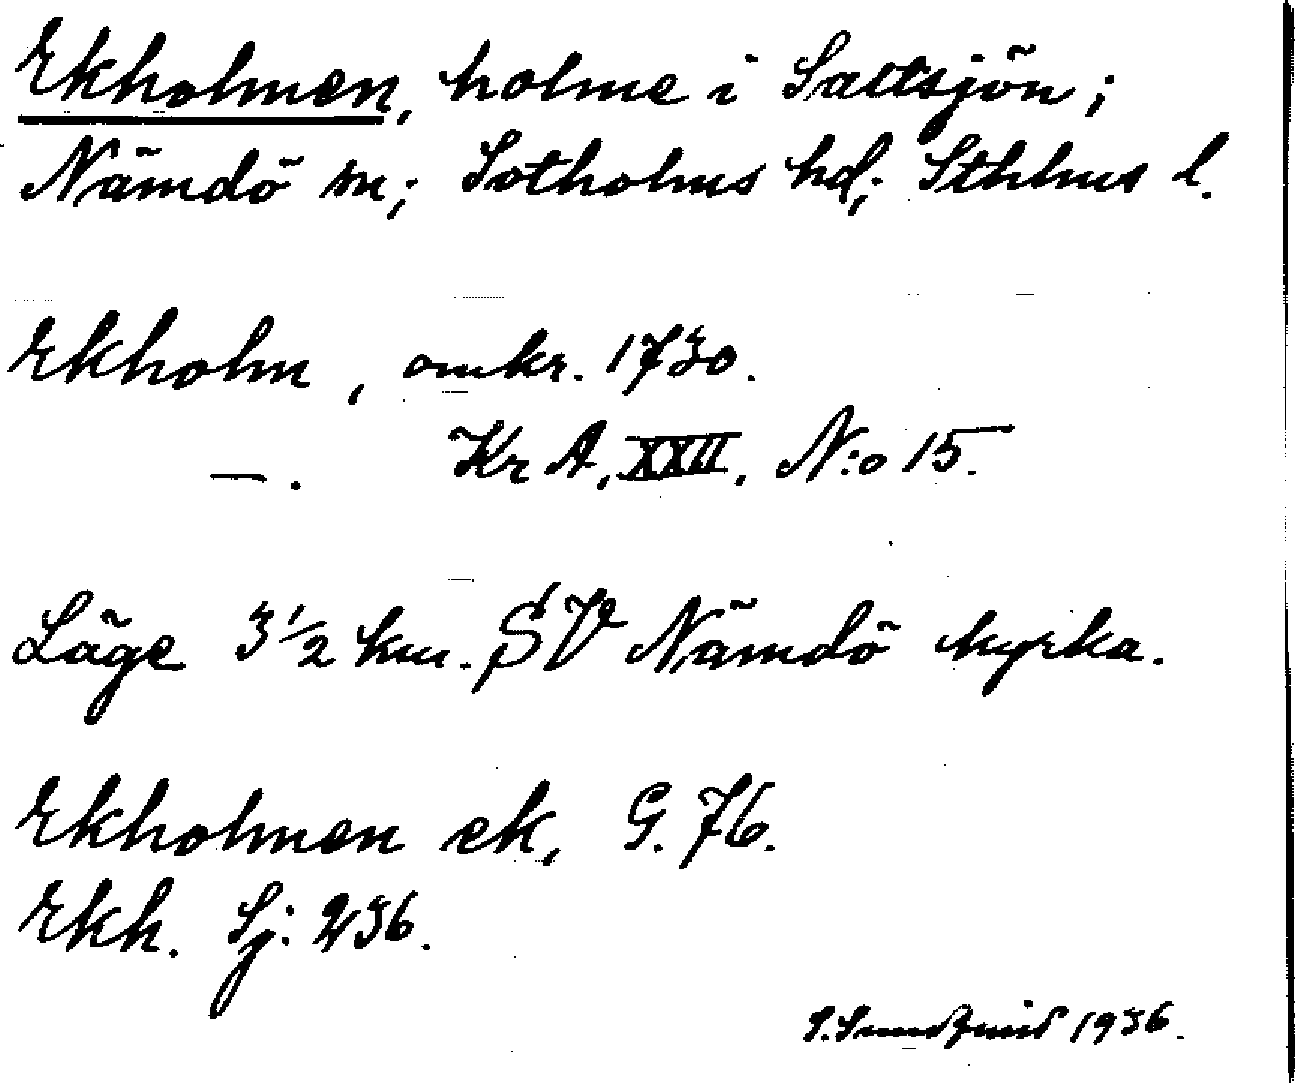 Ekholmen, holme i Saltsjön;
Nämdö sn; Sotholms hd; Sthlms l.
Ekholm, omkr. 1730.
—. KrA, XXII, N:o 15.
Läge 3 1/2 km. SV Nämdö kyrka.
Ekholmen ek, G. 76.
Ekh. Sj: 236.
S. Sundqvist 1936.